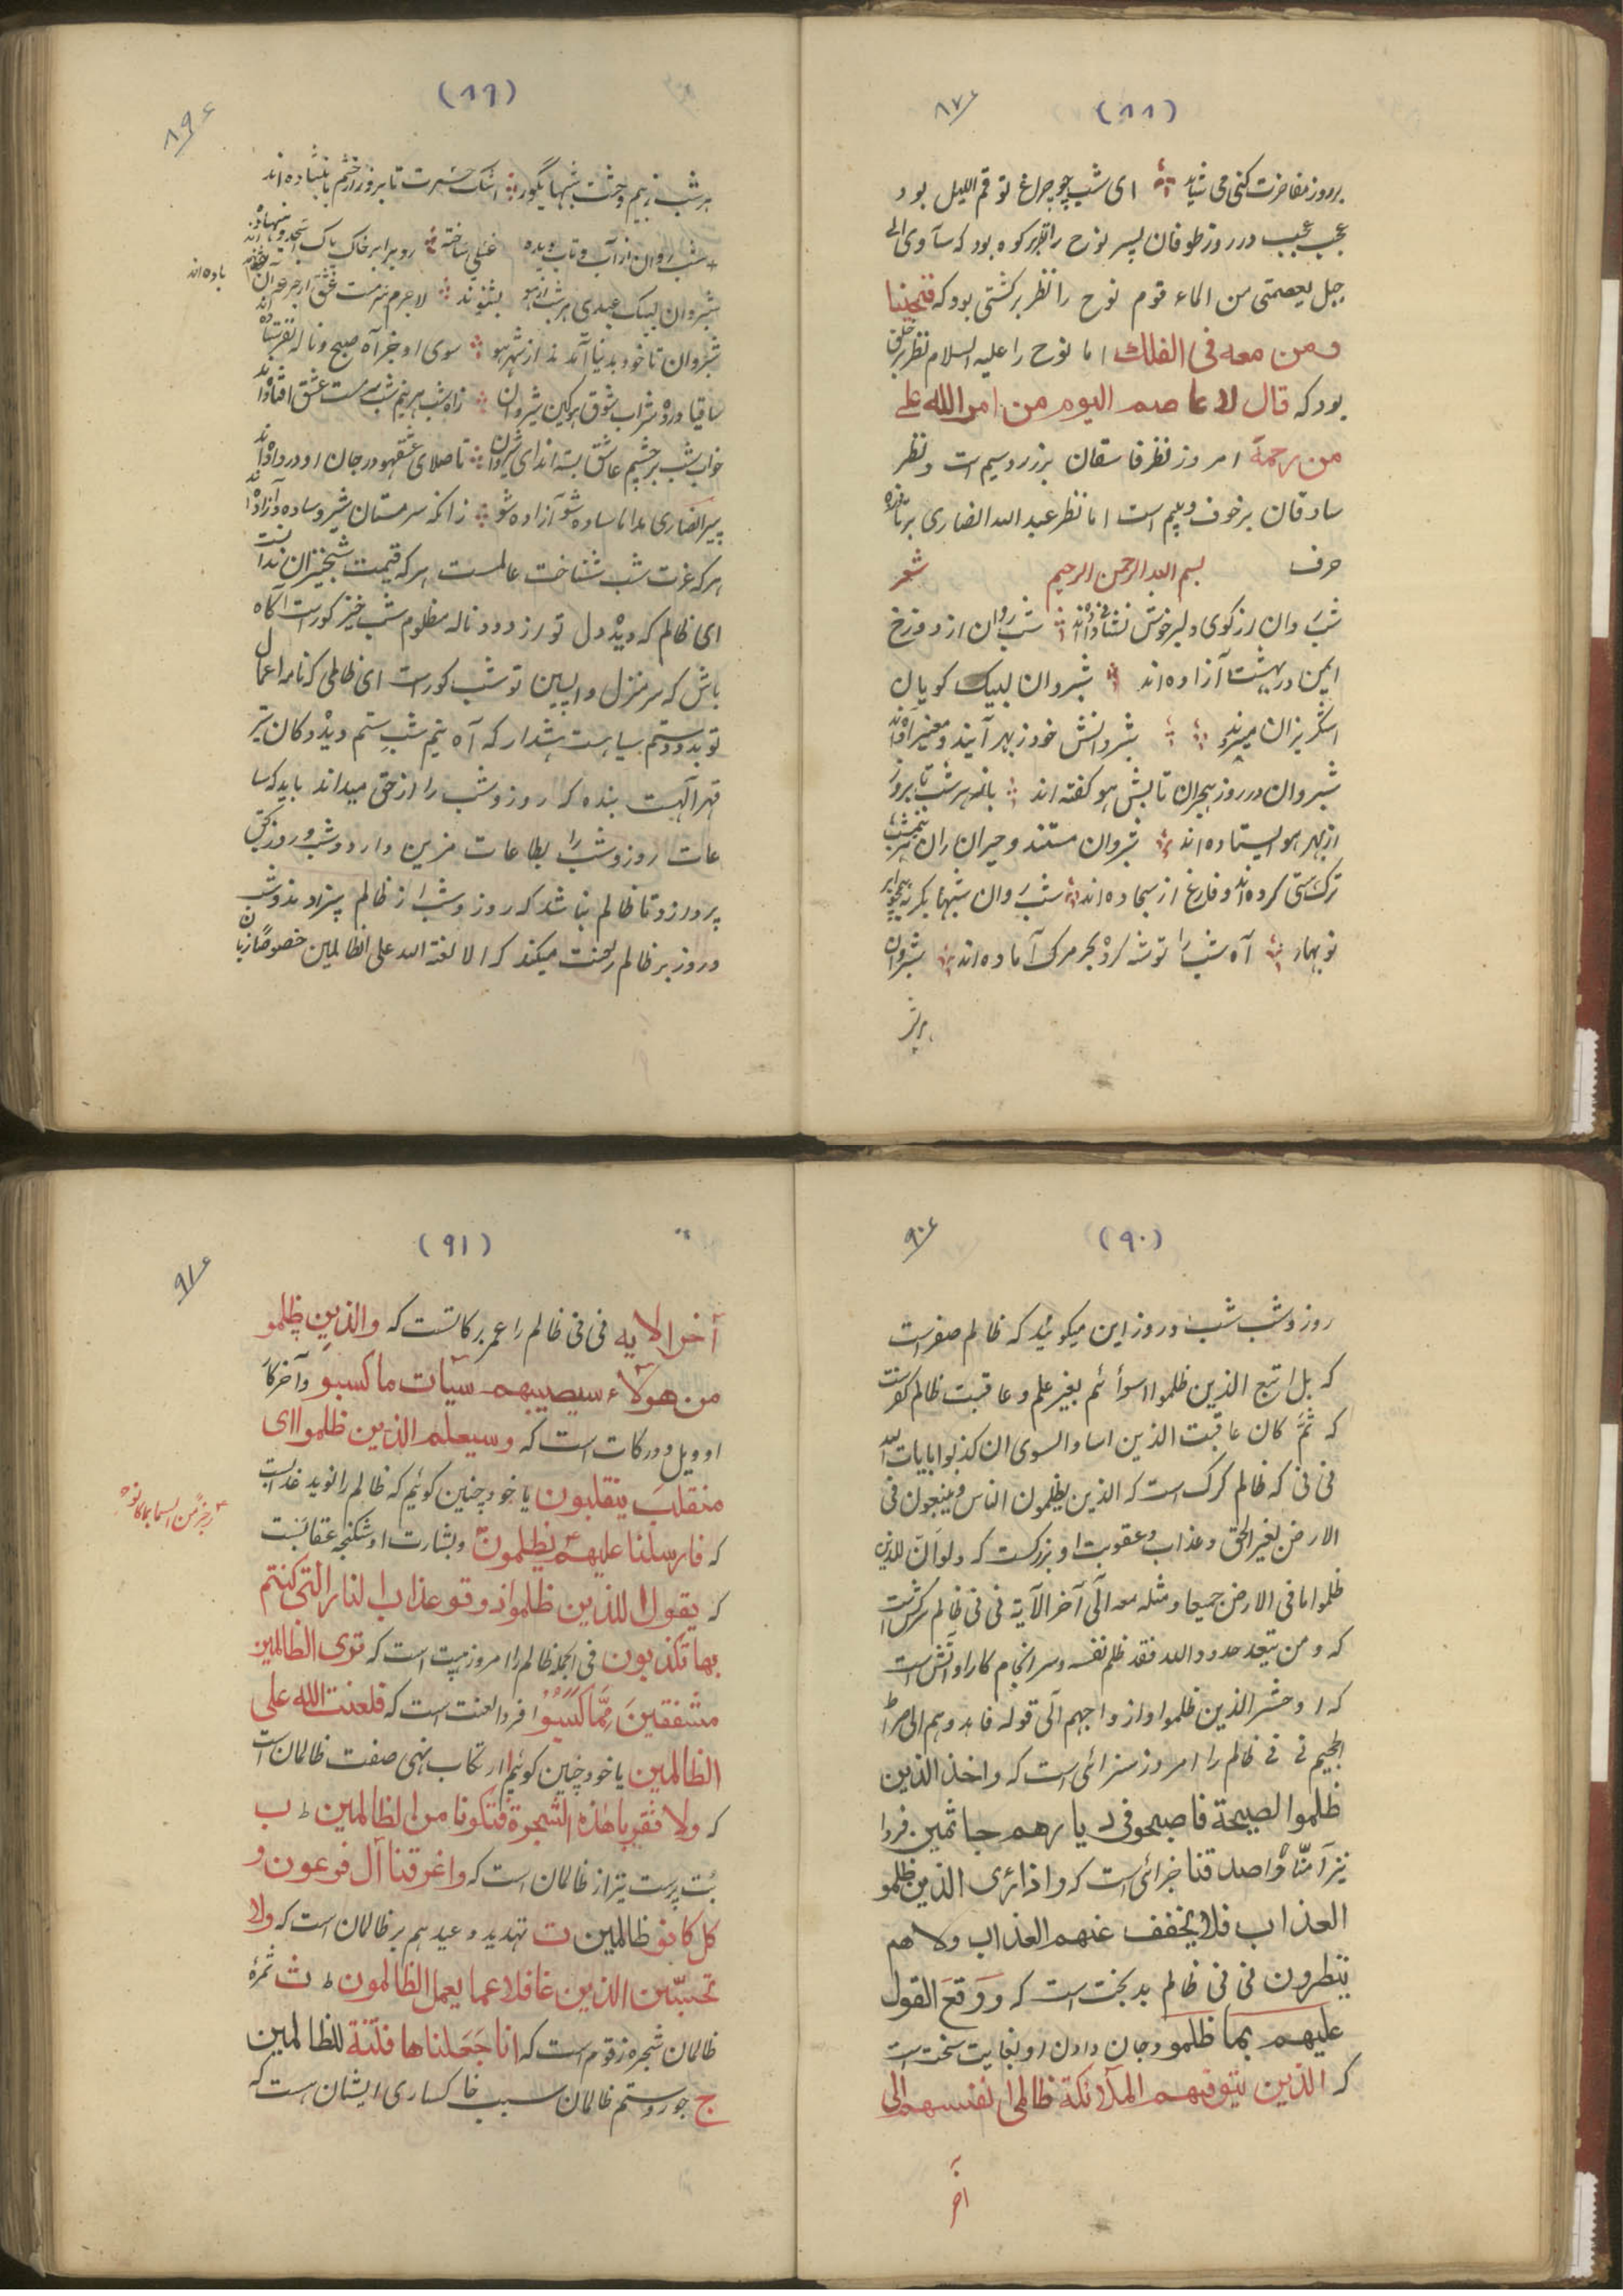 (۸۸)
۸۷
بر روز مفاخرت کنی می شاید ای شب چو چراغ تو قم اللیل بود
عجب عجب در روز طوفان پسر نوح را نظر بر کوه بود که سآوی الی
جبل یعصمنی من الماء قوم نوح را نظر بر کشتی بود که فنجینا
ومن معه فی الفلك اما نوح را علیه السلام نظر بر خلق
بود که قال لا عاصم الیوم من امر الله علی
من رحمة امروز نظر فاسقان بر زر و سیم است و نظر
صادقان بر خوف و بیم است اما نظر عبد الله انصاری بر
حرف بسم الله الرحمن الرحیم شعر
شب روان از کوی دلبر خوش نشان داده اند شب روان از دوزخ
ایمن در بهشت آزاده اند شبروان لبیک گویان
اشک ریزان میروند شبروانش خود ز بهر
شبروان در روز هجران تابش هو گفته اند هر شب تا بروز
از بهر هو ایستاده اند شبروان مستند و حیران
ترک هستی کرده اند و فارغ از سجاده اند شب روان شبها بگریه همچو ابر
نوبهار آه شب را توشه کرده بحر مرگ آماده اند شبروان
هر شب
(۸۹)
۸۹
هر شب ز بیم وحشت شبهای گور اشک حسرت تا بروز از چشم بگشاده اند
شب روان از آب و تاب دیده غسلی ساخته رو برابر خاک پاک
شبروان لبیک عبدی هر شب از هو بشنوند لاجرم سرمست عشق از جرعه آن
باده اند
شبروان تا خود بدنیا آمدند از شهر هو سوی او جز آه صبح و ناله نفرستاده اند
ساقیا در ده شراب شوق شبروان زانکه هر نیم شب مست عشق افتاده اند
خواب شب بر چشم عاشق بسته اند ای شبروان تا صلای عشق هو در جان او در داده اند
پیر انصاری بدانا ساده شو آزاده شو زانکه سرمستان شبرو ساده و آزاده اند
هر که عزت شب شناخت عالمست هر که قیمت شبخیزان بدانست
ای ظالم که دیده دل تو از دود ناله مظلوم شب خیز کور است آگاه
باش که سر منزل واپسین تو شب گور است ای ظالمی که نامه اعمال
تو بدود ستم سیاهست هشدار که آه نیم شب ستم دیده کان تیر
قهر الهیت بنده که روز و شب را از حق میداند باید که سا
عات روز و شب را بطاعات مزین دارد و شب و روز بحق
پردازد تا ظالم نباشد که روز و شب از ظالم بیزارند و شب
و روز بر ظالم لعنت میکند که الا لعنة الله علی الظالمین خصوصا زبان
(۹۰)
۹۰
روز و شب شب و روز این میگویند که ظالم صفر است
که بل اتبع الذین ظلموا اسوأ ئهم بغیر علم و عاقبت ظالم کفر است
که ثم کان عاقبت الذین اساؤ السوی ان کذبوا بایات الله
نی نی که ظالم گرگ است که الذین یظلمون الناس و یبغون فی
الارض بغیر الحق و عذاب و عقوبت او بزرگست که ولو ان للذین
ظلموا ما فی الارض جمیعا و مثله معه الی آخر الآیة نی نی ظالم سرکش است
که و من یتعد حدود الله فقد ظلم نفسه و سرانجام کار او آتش است
که احشر الذین ظلموا و ازواجهم الی قوله فاهدوهم الی صراط
الجحیم نی نی ظالم را امروز سزائی است که واخذ الذین
ظلموا الصیحة فاصبحو فی دیارهم جاثمین فردا
نیز آمنا و اصدقنا جزائی است که و اذا رئ الذین ظلمو
العذاب فلا یخفف عنهم العذاب ولا هم
ینظرون نی نی ظالم بدبخت است که و وقع القول
علیهم بما ظلمو و جان دادن او بغایت سخت است
که الذین یتوفیهم الملائکة ظالمی انفسهم الی
آخر
(۹۱)
۹۱
آخر الایه نی نی ظالم را عمر بی برکاتست که والذین ظلمو
من هولاء سیصیبهم سیآت ما کسبو و آخر کار
او ویل و درکات است که وسیعلم الذین ظلموا ای
منقلب ینقلبون یا خود چنین گوئیم که ظالم را نوید عذابست
که فارسلنا علیهم یظلمون و بشارت او شکنجه عقابست
رجزًا من السما بما کانوا
که یقول للذین ظلموا ذوقو عذاب النار التی کنتم
بها تکذبون فی الجمله ظالم را امروز هیبت است که تری الظالمین
مشفقین مما کسبوا فردا لعنت است که فلعنت الله علی
الظالمین یا خود چنین گوئیم ا ارتکاب نهی صفت ظالمان است
که ولا تقربا هذه الشجرة فتکونا من الظالمین ط ب
بت پرست نیز از ظالمان است که واغرقنا آل فرعون و
کل کانو ظالمین ت تهدید و عید هم بر ظالمان است که ولا
تحسبن الذین غافلا عما یعمل الظالمون ط ث ثمره
ظالمان شجره زقوم است که انا جعلناها فتنة للظالمین
ج جور و ستم ظالمان سبب خاکساری ایشان است که